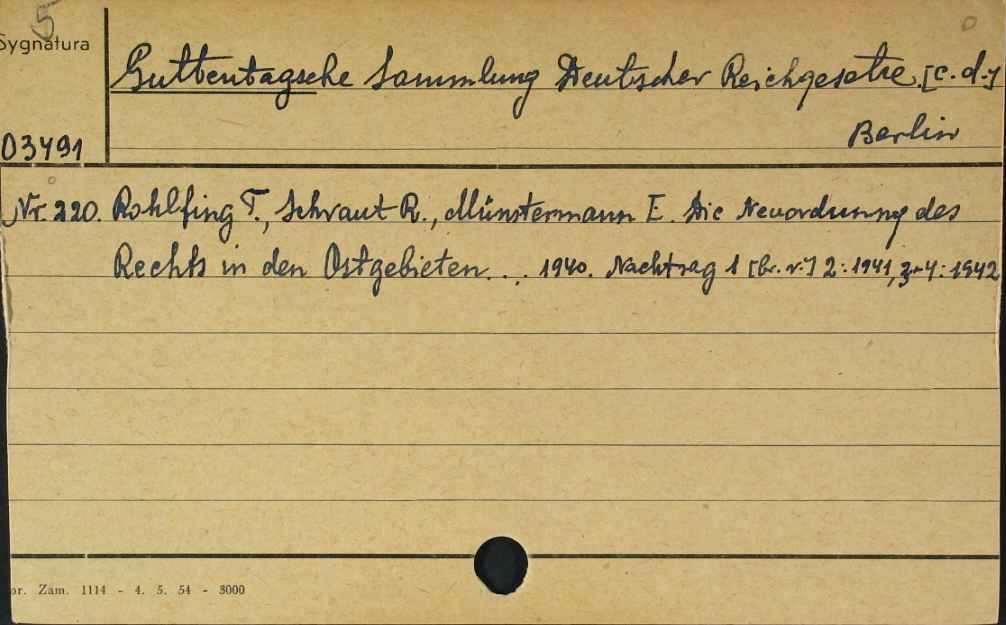 5
Sygnatura
Guttentagsche Sammlung Deutscher Reichgesetze. [c.d.]
Berlin
03491
Nr. 220. Rohlfing T., Schraut R., Münstermann E. Die Neuordnung des
Rechts in den Ostgebieten... 1940. Nachtrag 1 [br. r.] 2: 1941, 3-4: 1942
or. Zam. 1114 - 4. 5. 54 - 3000